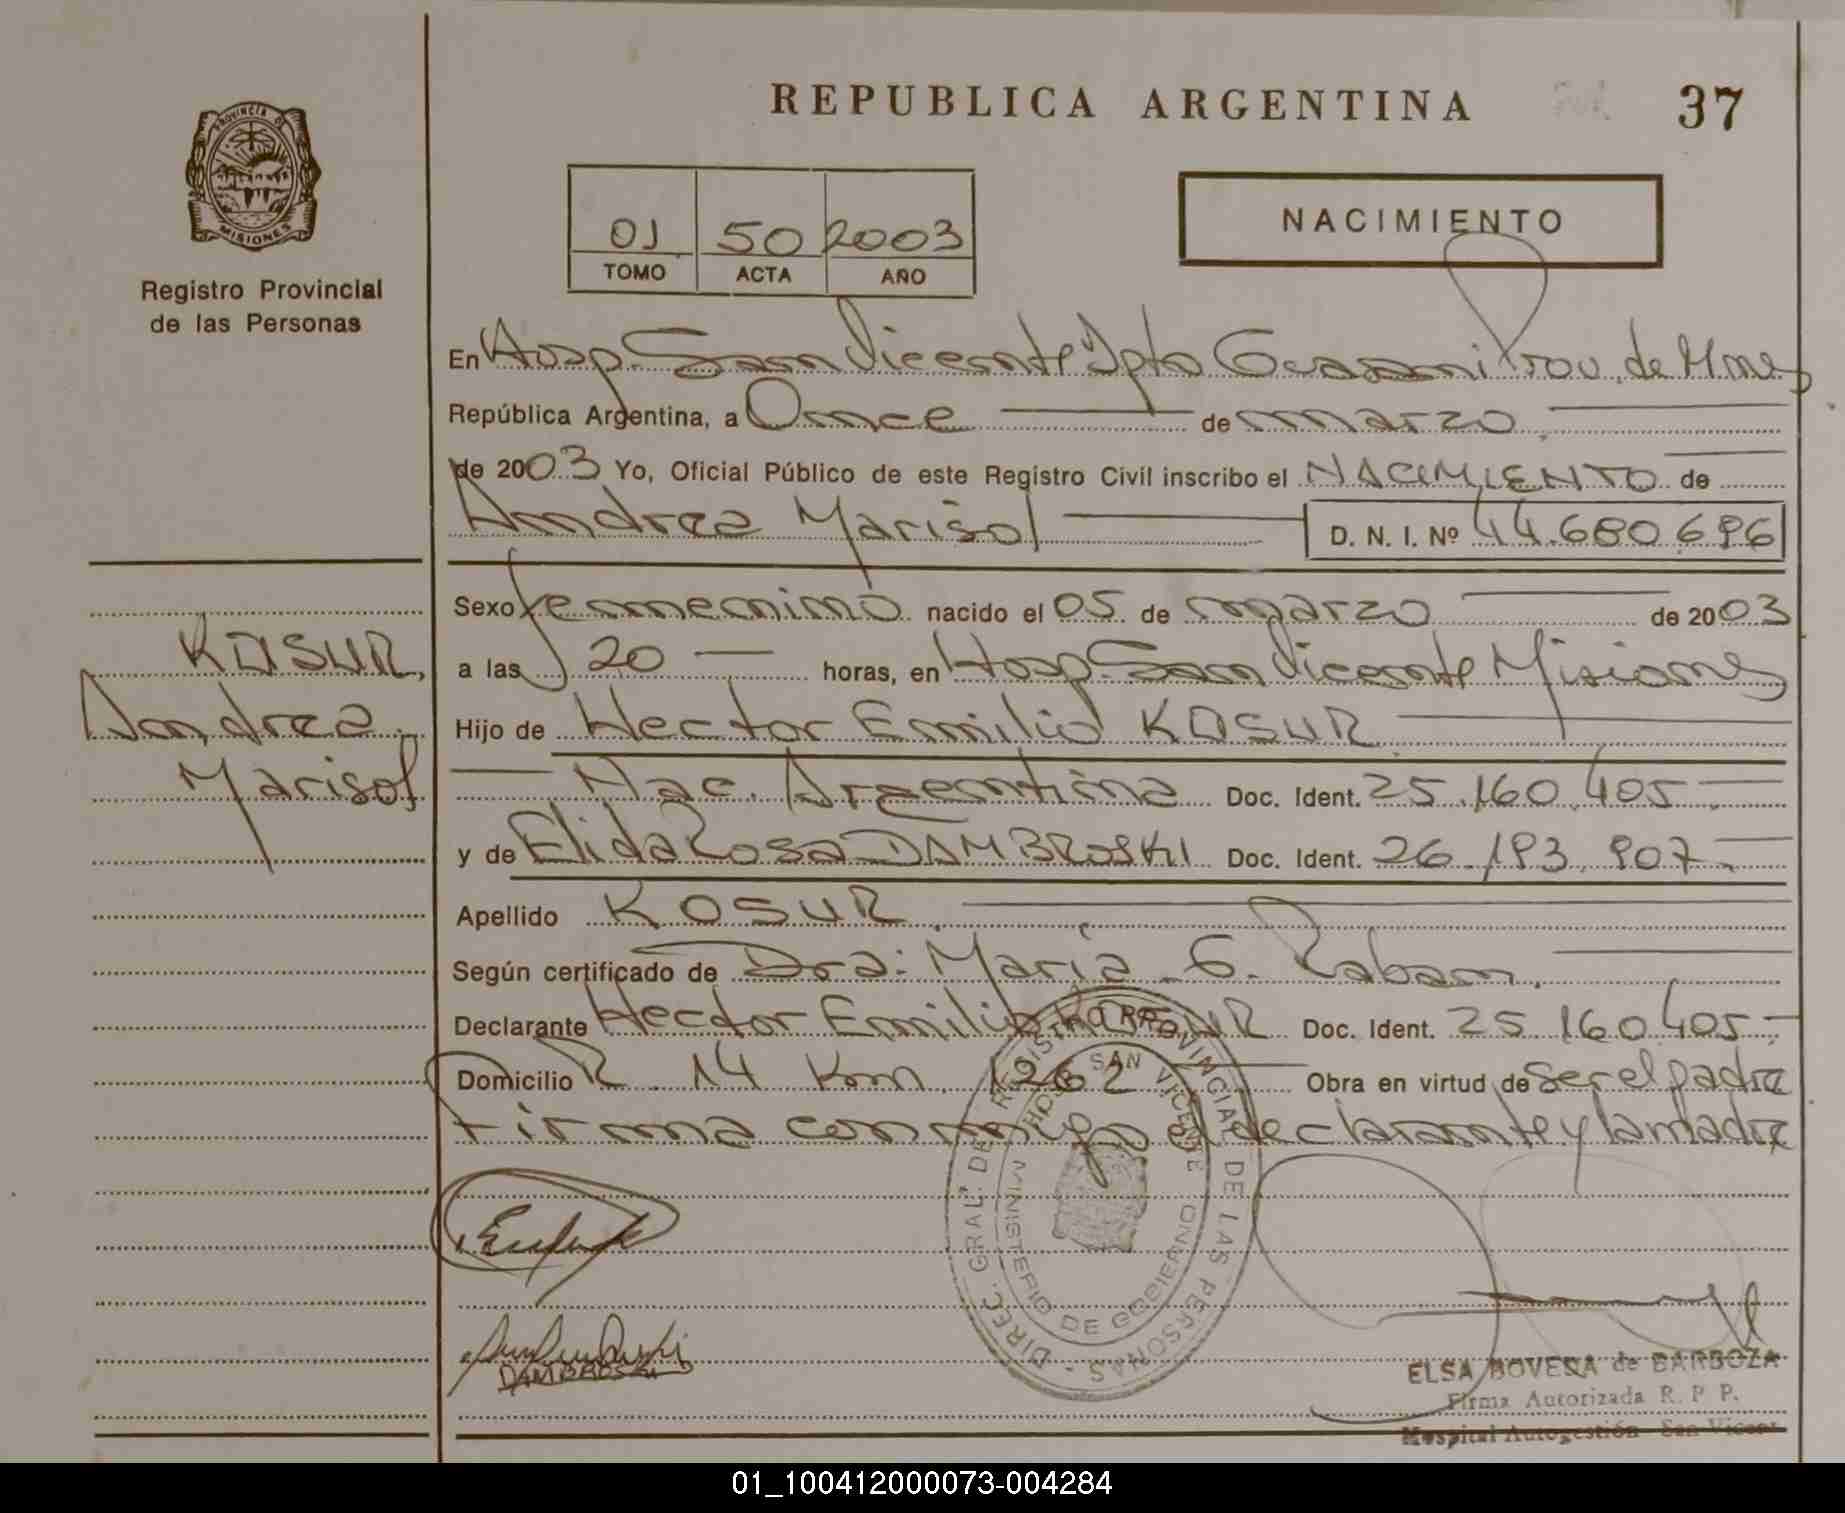 REPUBLICA ARGENTINA
37
PROVINCIA DE
MISIONES
Registro Provincial
de las Personas
01 50 2003
TOMO ACTA AÑO
NACIMIENTO
En Hosp. San Vicente Dpto Guarani Prov. de Mnes
República Argentina, a Once de marzo
de 2003 Yo, Oficial Público de este Registro Civil inscribo el NACIMIENTO de
Andrea Marisol D. N. I. Nº 44.680.696
Sexo femenino nacido el 05 de marzo de 2003
KOSUR,
a las 20 horas, en Hosp. San Vicente Misiones
Andrea
Hijo de Hector Emilio KOSUR
Marisol
Nac. Argentina Doc. Ident. 25.160.405
y de Elida Rosa DAMBROSKI Doc. Ident. 26.193.907
Apellido KOSUR
Según certificado de Dra: Maria G. Raban
Declarante Hector Emilio KOSUR Doc. Ident. 25.160.405
Domicilio R. 14 Km. 1262 Obra en virtud de ser el padre
Firma conmigo el declarante y la madre
DIREC. GRAL. DEL REGISTRO PROVINCIAL DE LAS PERSONAS
HOSP. SAN VICENTE
MINISTERIO DE GOBIERNO
DAMBROSKI
ELSA BOVERA de BARBOZA
Firma Autorizada R. P. P.
Hospital Autogestión San Vicente
01_100412000073-004284